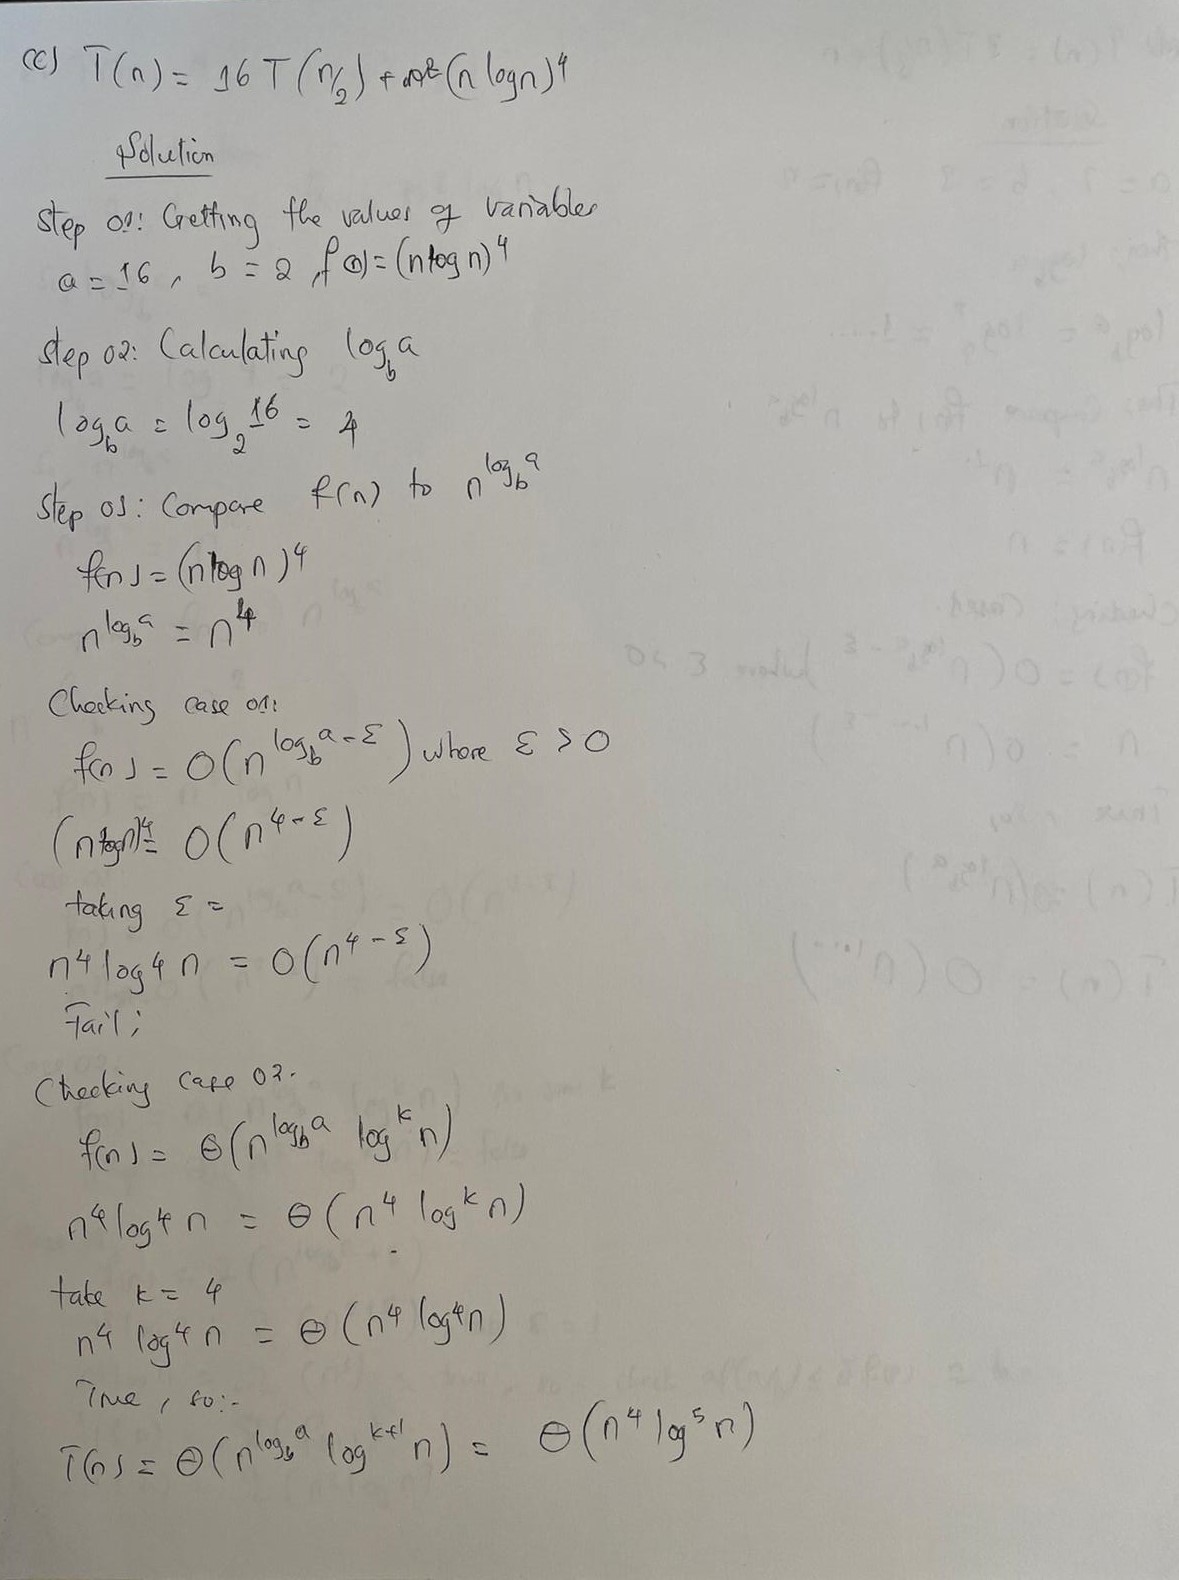 (c) T(n) = 16 T(n/2) + (n log n)^4
Solution
Step 01: Getting the values of variables
a = 16, b = 2, f(n) = (n log n)^4
Step 02: Calculating log_b a
log_b a = log_2 16 = 4
Step 03: Compare f(n) to n^{log_b a}
f(n) = (n log n)^4
n^{log_b a} = n^4
Checking case 01:
f(n) = O(n^{log_b a - ε}) where ε > 0
(n log n)^4 = O(n^{4-ε})
taking ε =
n^4 log^4 n = O(n^{4-ε})
Fail;
Checking Case 02.
f(n) = Θ(n^{log_b a} log^k n)
n^4 log^4 n = Θ(n^4 log^k n)
take k = 4
n^4 log^4 n = Θ(n^4 log^4 n)
True, so:-
T(n) = Θ(n^{log_b a} log^{k+1} n) = Θ(n^4 log^5 n)